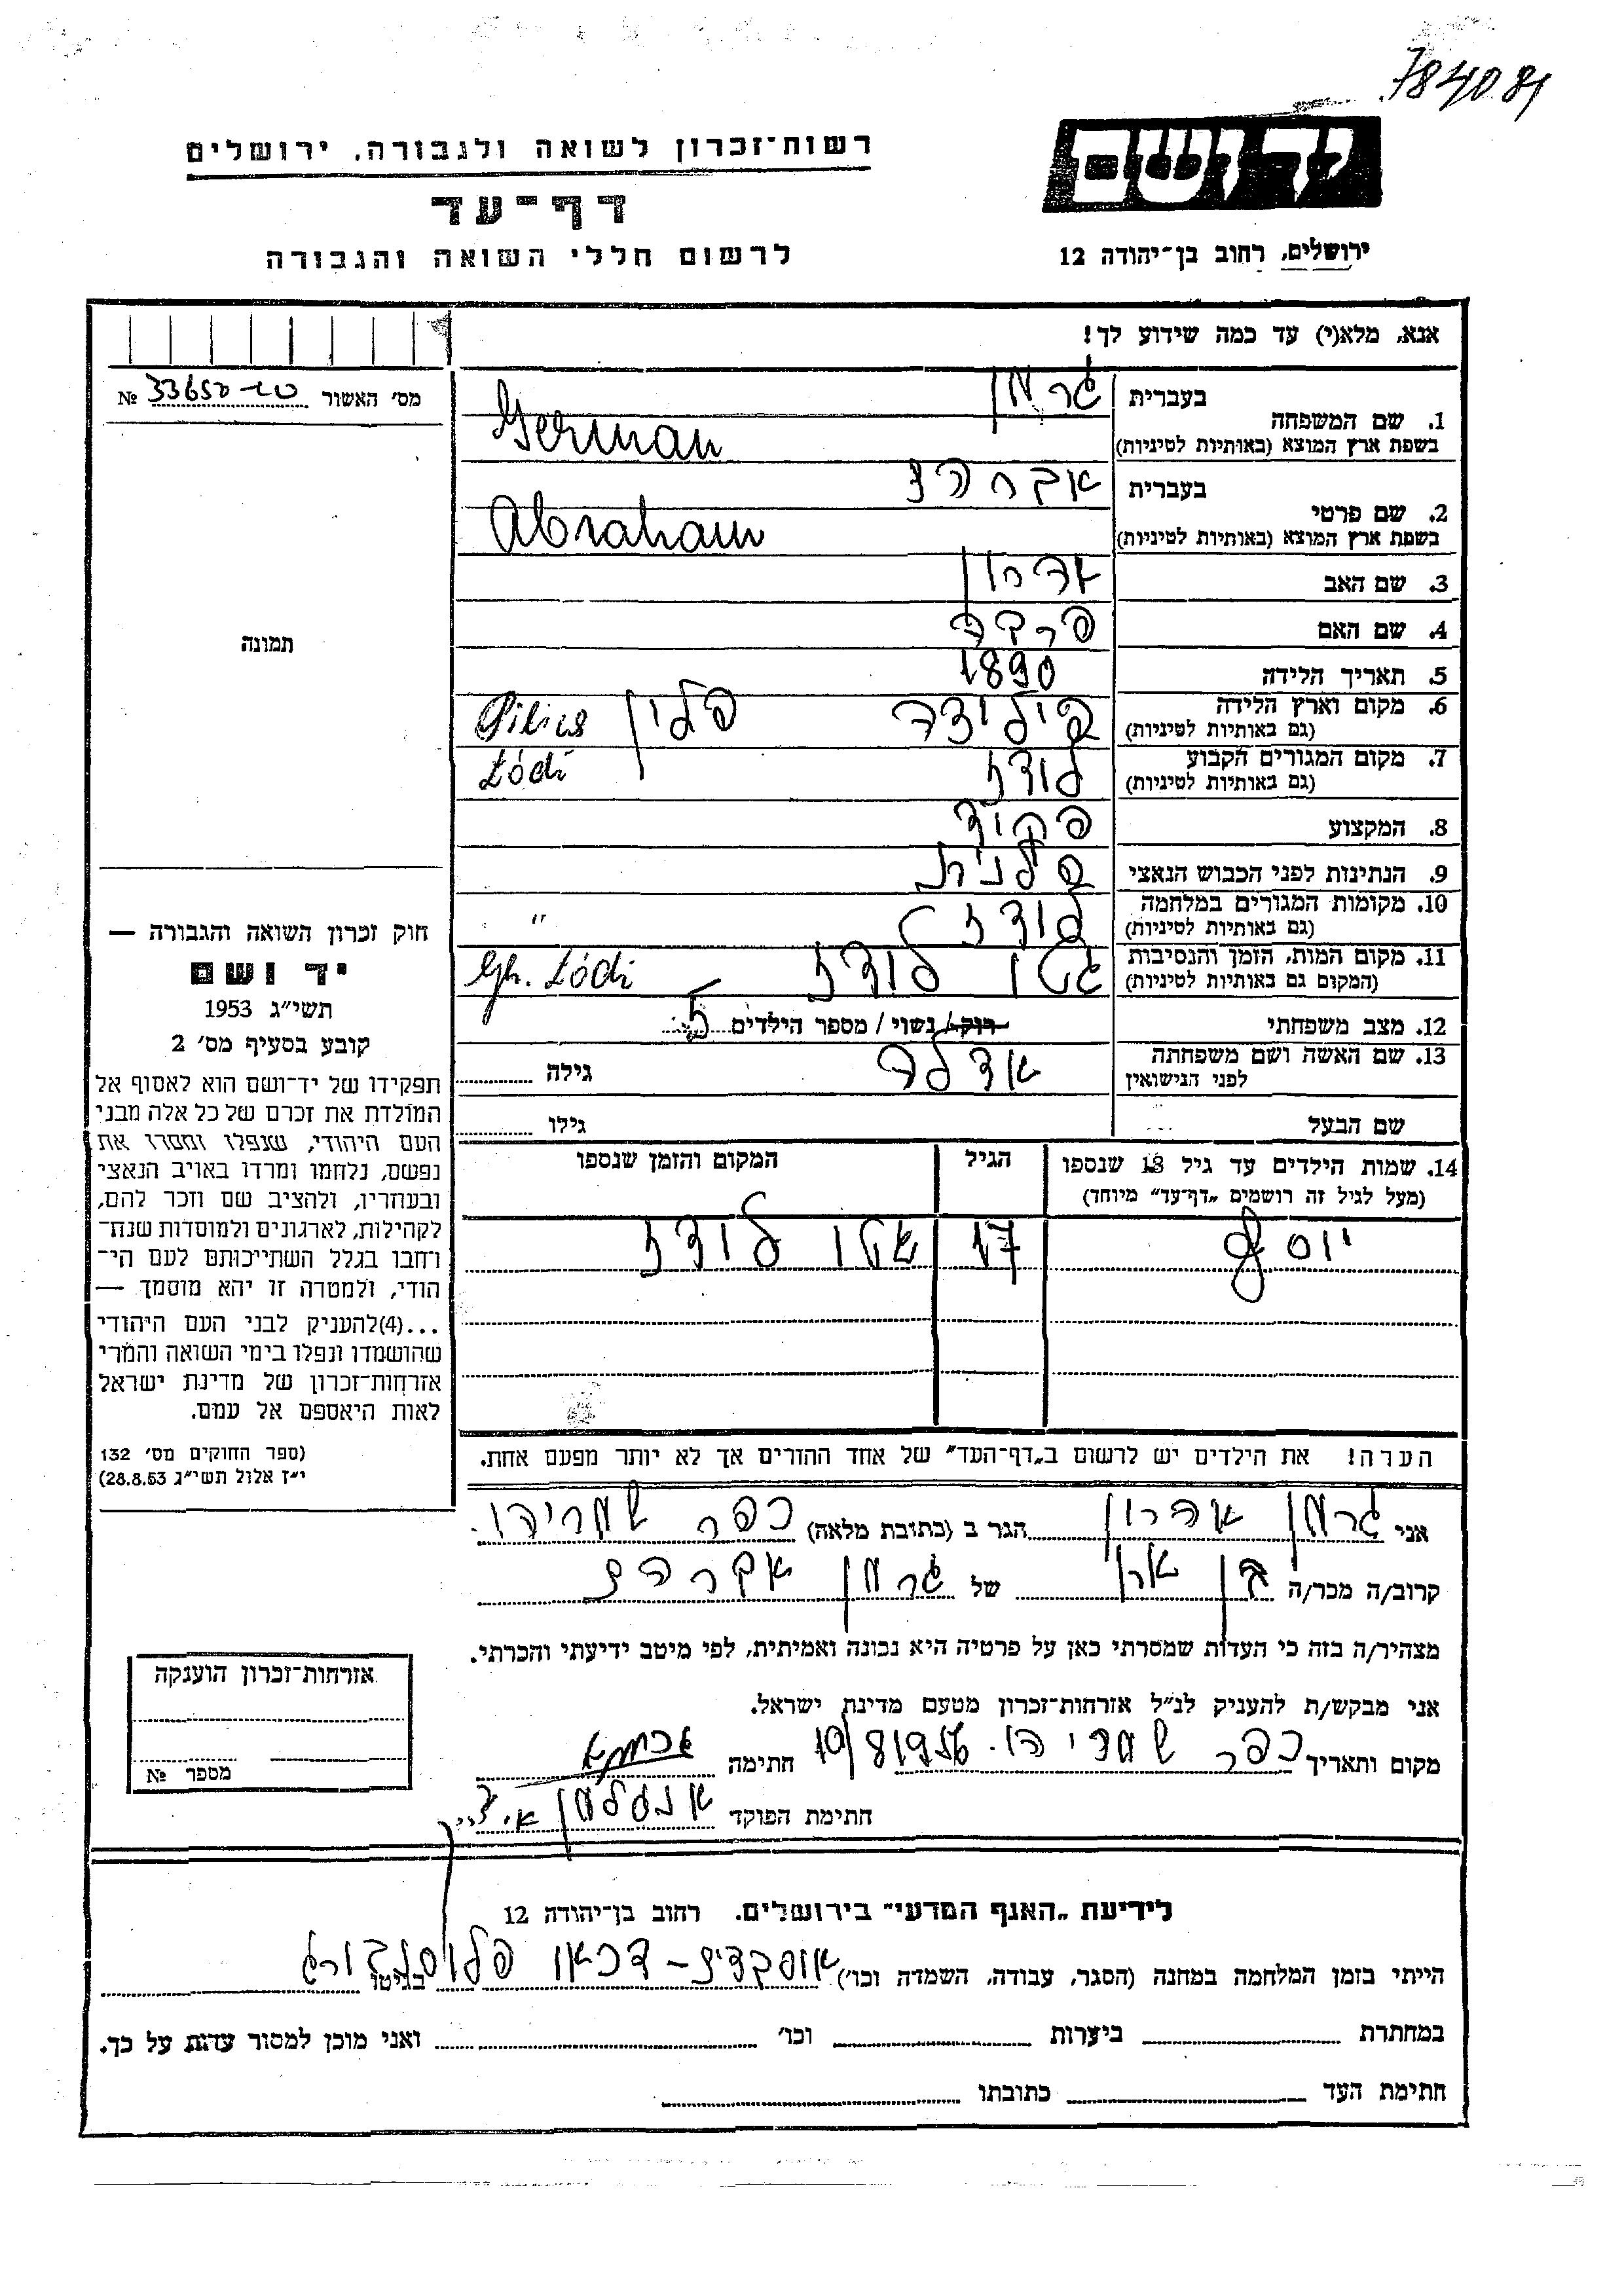 784081
יד ושם
רשות־זכרון לשואה ולגבורה, ירושלים
דף־עד
לרשום חללי השואה והגבורה
ירושלים, רחוב בן־יהודה 12
אנא, מלא(י) עד כמה שידוע לך!
מס' האשור № 33650
1. שם המשפחה
בעברית גרמן
בשפת ארץ המוצא (באותיות לטיניות) German
2. שם פרטי
בעברית אברהם
בשפת ארץ המוצא (באותיות לטיניות) Abraham
3. שם האב אהרון
4. שם האם
5. תאריך הלידה 1890
6. מקום וארץ הלידה
(גם באותיות לטיניות) פיליצה פלין Pilica
7. מקום המגורים הקבוע
(גם באותיות לטיניות) לודז Łódź
8. המקצוע פקיד
9. הנתינות לפני הכבוש הנאצי פלנית
10. מקומות המגורים במלחמה
(גם באותיות לטיניות) לודז "
11. מקום המות, הזמן והנסיבות
(המקום גם באותיות לטיניות) גטו לודז Gh. Łódź
12. מצב משפחתי רוק / נשוי / מספר הילדים 5
13. שם האשה ושם משפחתה
לפני הנישואין אדלה גילה
שם הבעל גילו
14. שמות הילדים עד גיל 18 שנספו
(מעל לגיל זה רושמים „דף־עד" מיוחד)
הגיל
המקום והזמן שנספו
יוסף 17 גטו לודז
הערה! את הילדים יש לרשום ב„דף־העד" של אחד ההורים אך לא יותר מפעם אחת.
תמונה
חוק זכרון השואה והגבורה —
יד ושם
תשי"ג 1953
קובע בסעיף מס' 2
תפקידו של יד־ושם הוא לאסוף אל
המולדת את זכרם של כל אלה מבני
העם היהודי, שנפלו ומסרו את
נפשם, נלחמו ומרדו באויב הנאצי
ובעוזריו, ולהציב שם וזכר להם,
לקהילות, לארגונים ולמוסדות שנח־
רבו בגלל השתייכותם לעם הי־
הודי, ולמטרה זו יהא מוסמך —
...(4)להעניק לבני העם היהודי
שהושמדו ונפלו בימי השואה והמרי
אזרחות־זכרון של מדינת ישראל
לאות היאספם אל עמם.
(ספר החוקים מס' 132
י"ז אלול תשי"ג 28.8.53)
אני גרמן אהרון הגר ב (כתובת מלאה) כפר שמריהו
קרוב/ה מכר/ה בן של גרמן אברהם
מצהיר/ה בזה כי העדות שמסרתי כאן על פרטיה היא נכונה ואמיתית, לפי מיטב ידיעתי והכרתי.
אני מבקש/ת להעניק לנ"ל אזרחות־זכרון מטעם מדינת ישראל.
מקום ותאריך כפר שמריהו. 10/8 1956 חתימה
חתימת הפוקד
אזרחות־זכרון הוענקה
מספר №
לידיעת „האגף המדעי" בירושלים. רחוב בן־יהודה 12
הייתי בזמן המלחמה במחנה (הסגר, עבודה, השמדה וכו') – דכאו פלוסנבורג בגיטו
במחתרת ביערות וכו' ואני מוכן למסור עדות על כך.
חתימת העד כתובתו